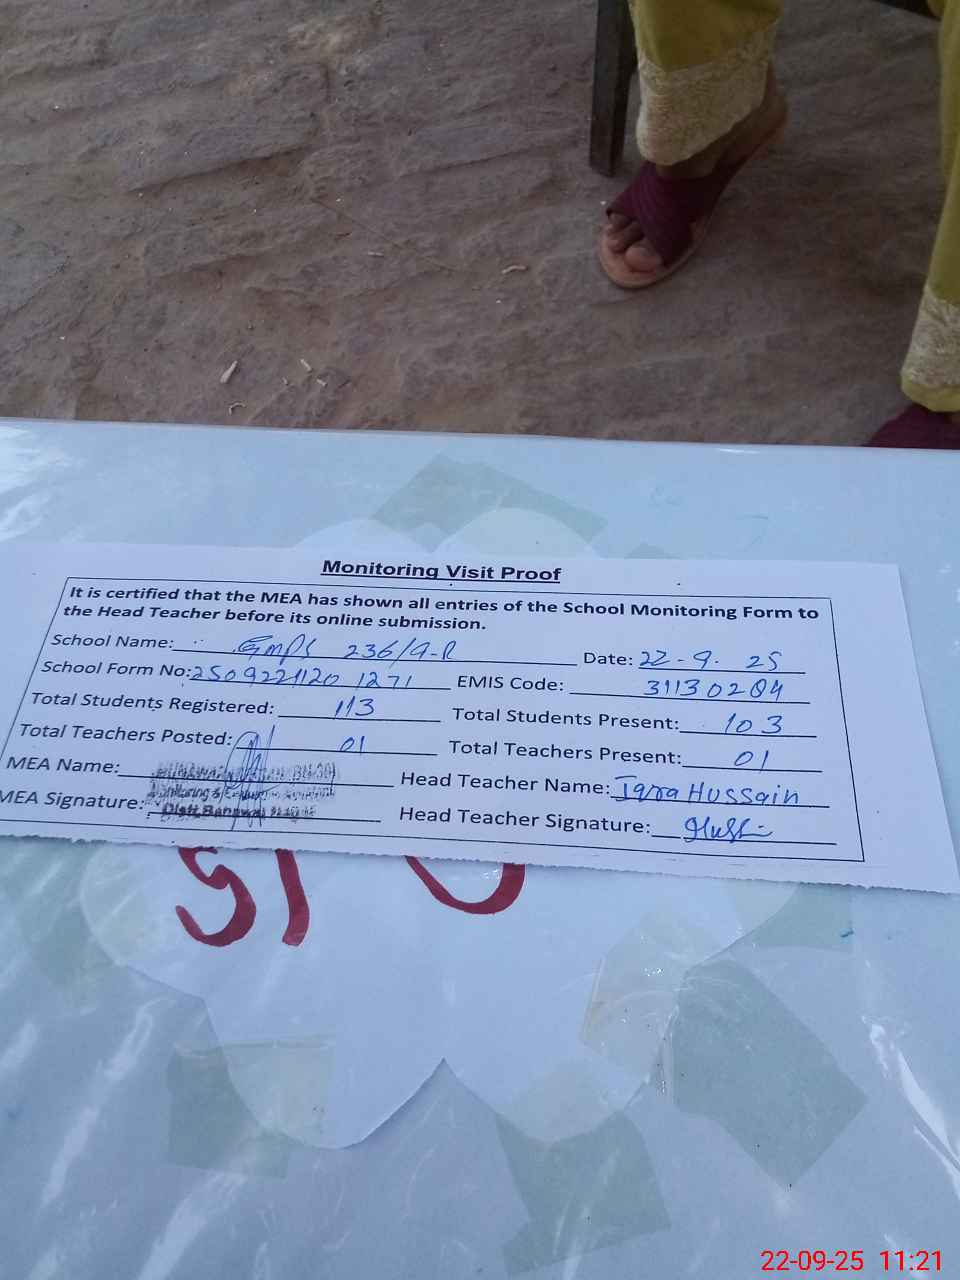 Monitoring Visit Proof
It is certified that the MEA has shown all entries of the School Monitoring Form to
the Head Teacher before its online submission.
School Name: GMPS 236/9-R Date: 22-9-25
School Form No: 2509221120 1271 EMIS Code: 31130204
Total Students Registered: 113 Total Students Present: 103
Total Teachers Posted: 01 Total Teachers Present: 01
MEA Name: Head Teacher Name: Iqra Hussain
MEA Signature: Head Teacher Signature:
22-09-25 11:21